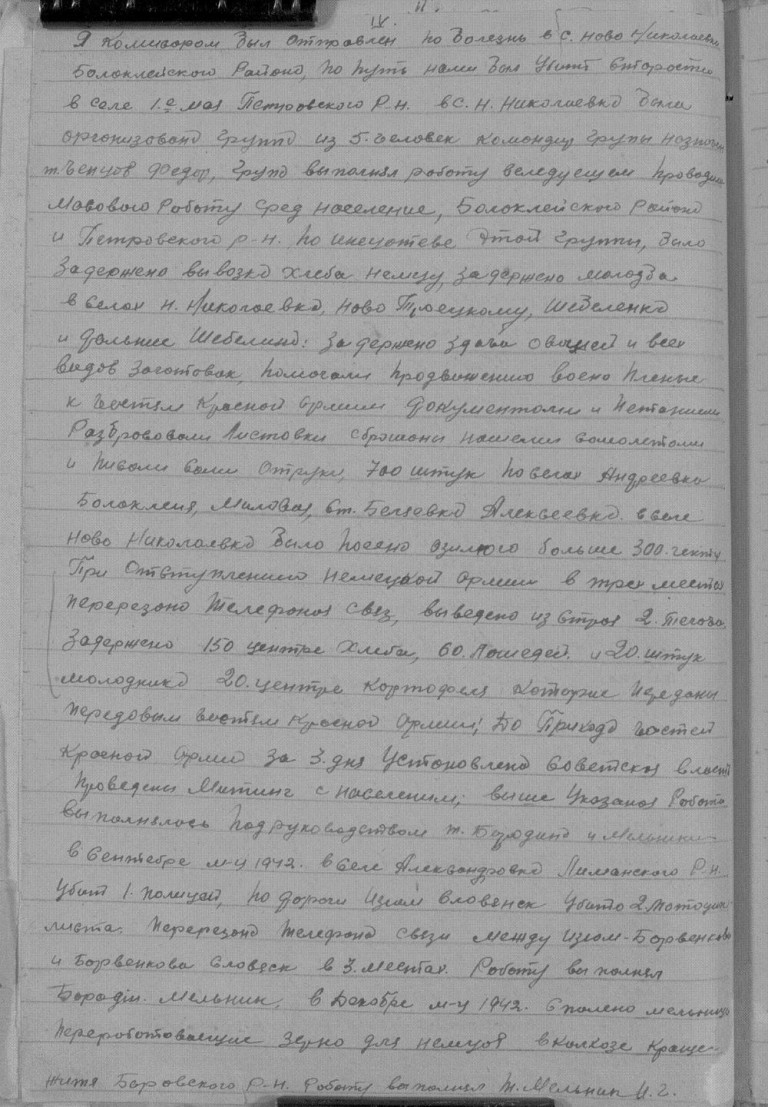 IV.
Я Комиваром был отправлен по болезнь в с. Ново Николаевк
Балаклейского Района, по путь нами был убит староста
в селе 1.е мая Петровского Р-н. в с. Н. Николаевка была
организована группа из 5. человек командир групы назначен
т. Ченцов Федор, група выполнял работу следуещем проводил
Масового Работу сред население, Балаклейского Района
и Петровского р-н. по этой группы, было
задержено вывозка хлеба немцу, задержено молодза
в селах Н. Николаевка, Ново Троецкому, Шебеленка
и дальние Шебелина: задержено здача овощей и всех
видов заготовак, помогали продвижению воено пленые
к частям Красной армии документами и Петанием
Разбрасовали Листовки сброшани нашеми самолетами
и писали сами отруки, 700 штук по селах Андреевка
Балаклея, Миловая, ст. Алексеевка. в селе
Ново Николаевка было посено озимого больше 300. гекта
При отвтуплению немецкой армии в трех места
перерезано телефоная связ, выведено из строя 2.
Задержено 150 центре хлеба, 60. Лошедей. и 20. штук
молодника 20. центре картофеля которые переданы
передовым частям Красной армии; До Прихода частей
Красной армии за 3. дня установлена Советская власть
Проведены Митинг с населением; выше указаная Работа
выполнялась под руководством т. Бородина и Мельника
в Сентебре м-ц 1942. в селе Александровка Лиманского Р-н.
убит 1. полицей, по дороги Изюм Славенск убито 2. мотоцик
листа. Перерезано телефона связи между Изюм-Барвенково
и Барвенкова Словяск в 3. местах. Работу выполнял
Бородин. Мельник. в Декабре м-ц 1942. спалено мельница
Переработоваещие зерно для немцов в колхозе Краще-
житя Боровского р-н. работу выполнял т. Мельник И. г.